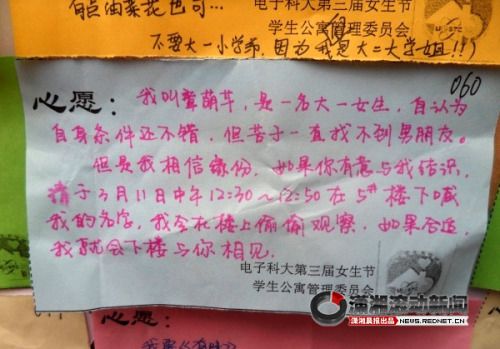 电子科大第三届女生节
学生公寓管理委员会
不要大一小学弟,因为我是大二大学姐!!)
060
心愿:我叫龚萌芊,是一名大一女生,自认为
自身条件还不错,但苦于一直找不到男朋友。
但是我相信缘份,如果你有意与我结识,
请于3月11日中午12:30~12:50在5#楼下喊
我的名字,我会在楼上偷偷观察,如果合适,
我就会下楼与你相见。
电子科大第三届女生节
学生公寓管理委员会
潇湘滚动新闻
潇湘晨报出品 NEWS.REDNET.CN
心愿: